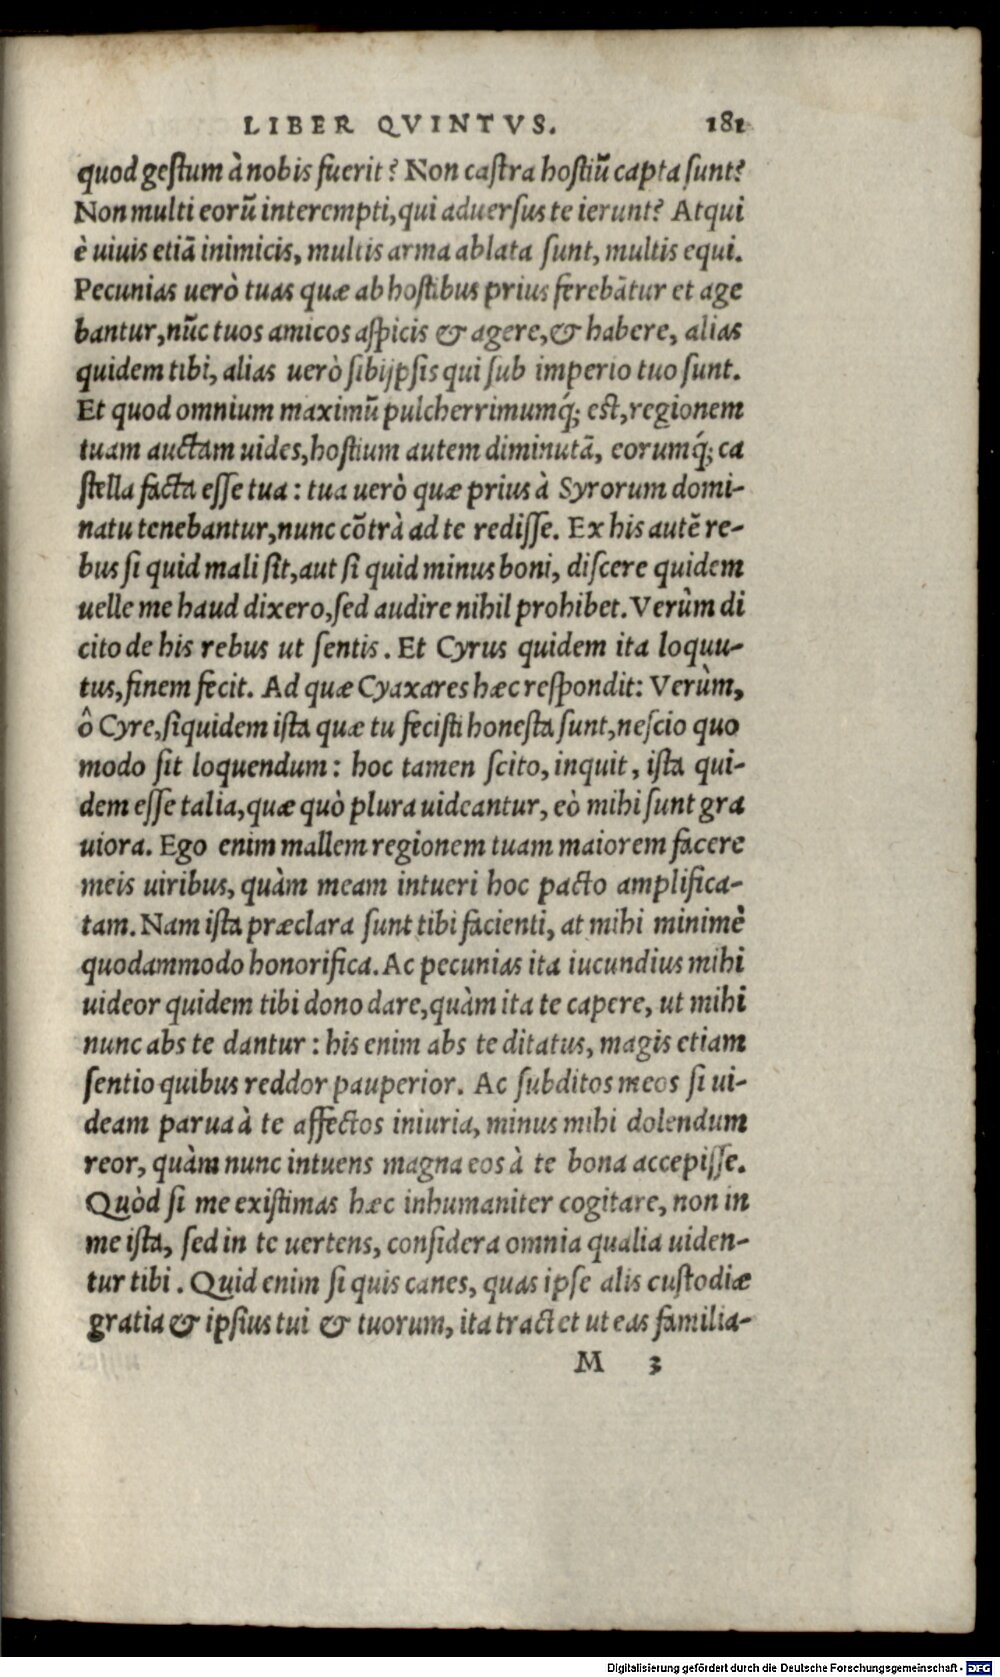 LIBER QVINTVS. 181
quod gestum à nobis fuerit? Non castra hostiũ capta sunt?
Non multi eorũ interempti, qui aduersus te ierunt? Atqui
è uiuis etiã inimicis, multis arma ablata sunt, multis equi.
Pecunias uerò tuas quæ ab hostibus prius ferebãtur et age
bantur, nũc tuos amicos aspicis & agere, & habere, alias
quidem tibi, alias uerò sibijpsis qui sub imperio tuo sunt.
Et quod omnium maximũ pulcherrimumq́; est, regionem
tuam auctam uides, hostium autem diminutã, eorumq́; ca
stella facta esse tua: tua uerò quæ prius à Syrorum domi-
natu tenebantur, nunc cõtrà ad te redisse. Ex his autẽ re-
bus si quid mali sit, aut si quid minus boni, discere quidem
uelle me haud dixero, sed audire nihil prohibet. Verùm di
cito de his rebus ut sentis. Et Cyrus quidem ita loquu-
tus, finem fecit. Ad quæ Cyaxares hæc respondit: Verùm,
ô Cyre, siquidem ista quæ tu fecisti honesta sunt, nescio quo
modo sit loquendum: hoc tamen scito, inquit, ista qui-
dem esse talia, quæ quò plura uideantur, eò mihi sunt gra
uiora. Ego enim mallem regionem tuam maiorem facere
meis uiribus, quàm meam intueri hoc pacto amplifica-
tam. Nam ista præclara sunt tibi facienti, at mihi minimè
quodammodo honorifica. Ac pecunias ita iucundius mihi
uideor quidem tibi dono dare, quàm ita te capere, ut mihi
nunc abs te dantur: his enim abs te ditatus, magis etiam
sentio quibus reddor pauperior. Ac subditos meos si ui-
deam parua à te affectos iniuria, minus mihi dolendum
reor, quàm nunc intuens magna eos à te bona accepisse.
Quòd si me existimas hæc inhumaniter cogitare, non in
me ista, sed in te uertens, considera omnia qualia uiden-
tur tibi. Quid enim si quis canes, quas ipse alis custodiæ
gratia & ipsius tui & tuorum, ita tractet ut eas familia-
M 3
Digitalisierung gefördert durch die Deutsche Forschungsgemeinschaft - DFG